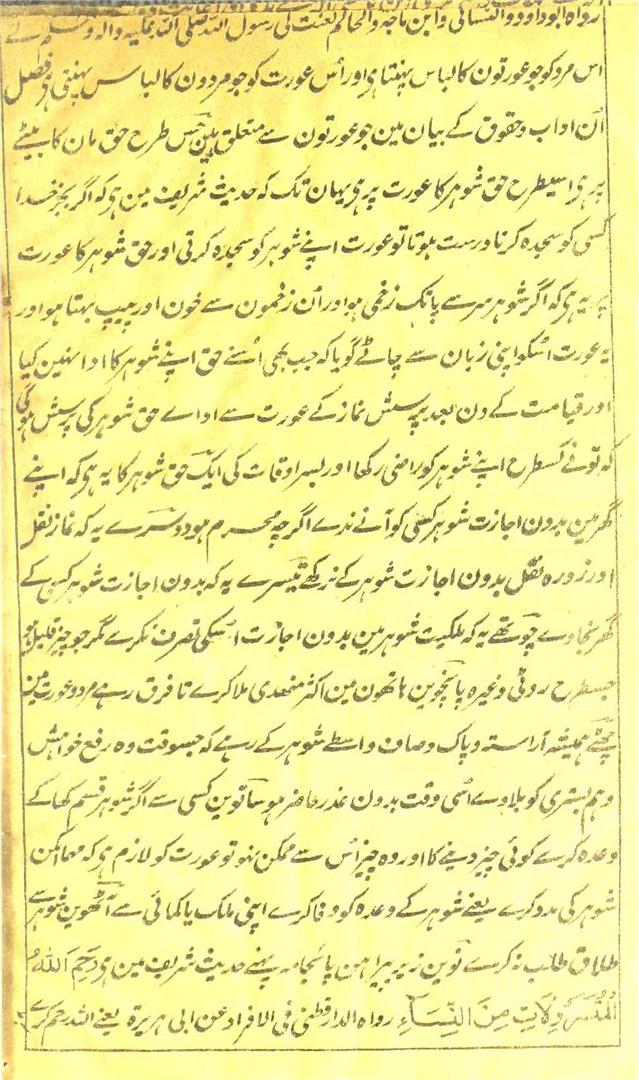 رواہ ابوداود والنسائی وابن ماجہ والحاکم لعنت کی رسول اللہ صلی اللہ علیہ والہ وسلم نے
اس مرد کو جو عورتون کا لباس پہنتا ہی اور اُس عورت کو جو مردون کا لباس پہنتی ہی فصل
اُن اداب وحقوق کے بیان مین جو عورتون سے متعلق ہین جس طرح حق مان کا بیٹے
پر ہی اسیطرح حق شوہر کا عورت پر ہی یہان تک کہ حدیث شریف مین ہی کہ اگر بجز خدا
کسی کو سجدہ کرنا درست ہوتا تو عورت اپنے شوہر کو سجدہ کرتی اور حق شوہر کا عورت
پر یہ ہی کہ اگر شوہر سر سے پا تک زخمی ہو اور اُن زخمون سے خون اور پیپ بہتا ہو اور
یہ عورت اسکو اپنی زبان سے چاٹے گویا کہ جب بھی اُسنے حق اپنے شوہر کا ادا نہین کیا
اور قیامت کے دن بعد پرسش نماز کے عورت سے اداے حق شوہر کی پرسش ہوگی
کہ تونے کسطرح اپنے شوہر کو راضی رکھا اور بسر اوقات کی ایک حق شوہر کا یہ ہی کہ اپنے
گھر مین بدون اجازت شوہر کسی کو آنے ندے اگرچہ محرم ہو دوسرے یہ کہ نماز نفل
اور روزہ نفل بدون اجازت شوہر کے نرکھے تیسرے یہ کہ بدون اجازت شوہر کسی کے
گھر نجاوے چوتھے یہ کہ ملکیت شوہر مین بدون اجازت اسکی تصرف نکرے مگر جو چیز قلیل ہو
جسطرح روٹی وغیرہ پانچوین ہاتھون مین اکثر مہندی ملا کرے تا فرق رہے مرد وعورت مین
چھٹے ہمیشہ آراستہ وپاک وصاف واسطے شوہر کے رہے کہ جسوقت وہ رفع خواہش
وہم بستری کو بلاوے اُسی وقت بدون عذر حاضر ہو ساتوین کسی سے اگر شوہر قسم کھا کے
وعدہ کرے کوئی چیز دینے کا اور وہ چیز اُس سے ممکن نہو تو عورت کو لازم ہی کہ مہما امکن
شوہر کی مدد کرے یعنے شوہر کے وعدہ کو وفا کرے اپنی ملک یا کمائی سے آٹھوین شوہر سے
طلاق طلب نہ کرے نوین زیر پیراہن پائجامہ پہنے حدیث شریف مین ہی رَحِمَ اللّٰہُ
المُتَسَرْوِلَاتِ مِنَ النِّسَاءِ رواہ الدارقطنی فی الافراد عن ابی ہریرۃ یعنے اللہ رحم کرے